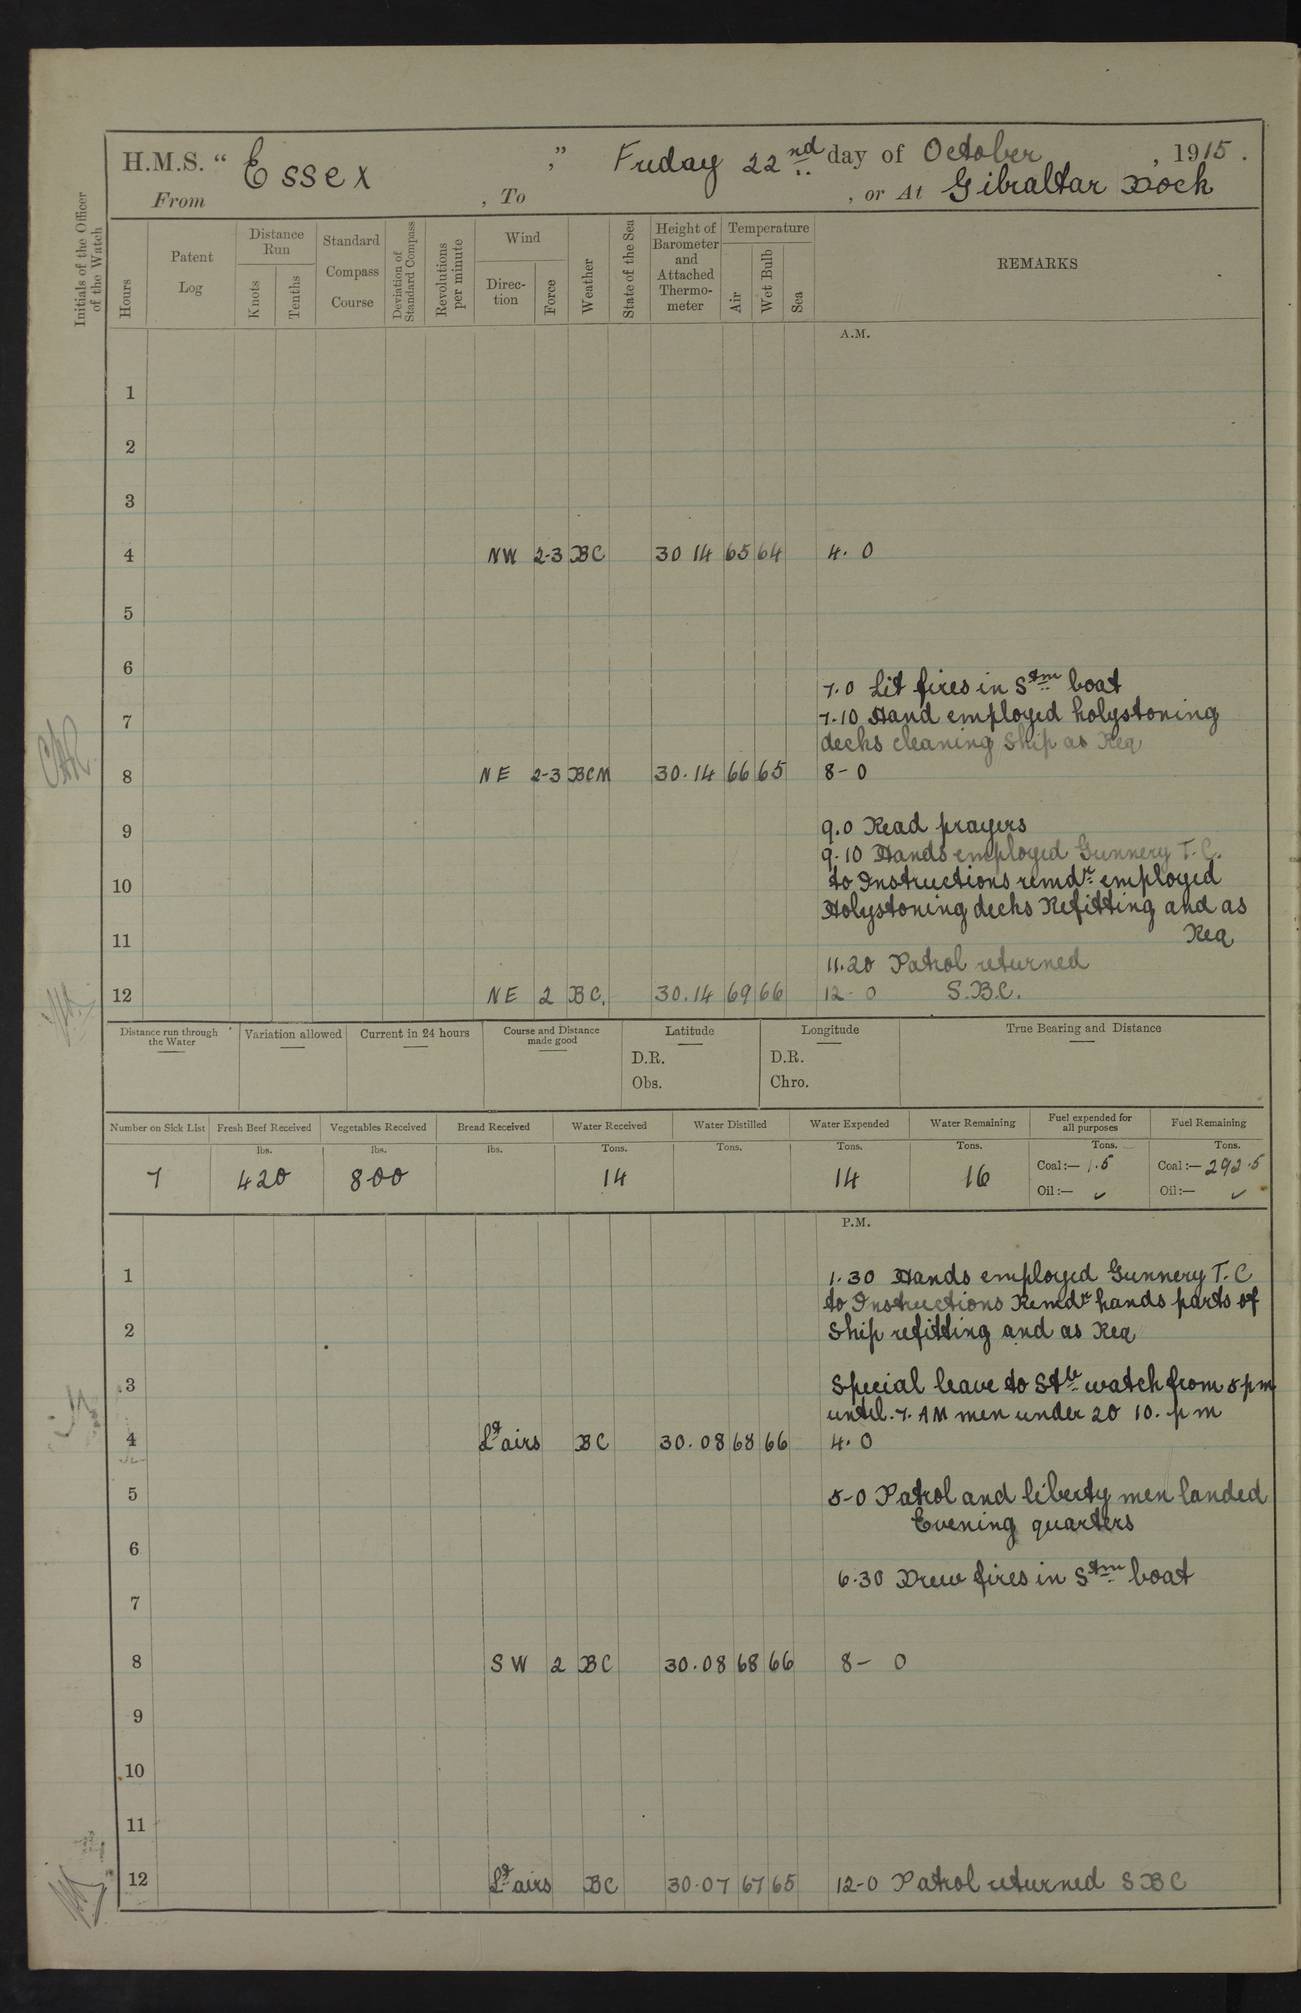 H.M.S. “ Essex ,” Friday 22nd day of October , 1915 .
From , To , or At Gibraltar Dock
Initials of the Officer of the Watch
Hours
Patent Log
Distance Run
Knots
Tenths
Standard Compass Course
Deviation of Standard Compass
Revolutions per minute
Wind
Direction
Force
Weather
State of the Sea
Height of Barometer and Attached Thermometer
Temperature
Air
Wet Bulb
Sea
REMARKS
A.M.
1
2
3
4 NW 2-3 BC 30 14 65 64 4. 0
5
6
7.0 Lit fires in Stm boat
7 7.10 Hand employed holystoning
decks cleaning Ship as Req
8 NE 2-3 BCM 30.14 66 65 8-0
9 9.0 Read prayers
9.10 Hands employed Gunnery T.C.
10 to Instructions remdr employed
Holystoning decks Refitting and as
11 Req
11.20 Patrol returned
12 NE 2 BC. 30.14 69 66 12-0 S.B.C.
Distance run through the Water
Variation allowed
Current in 24 hours
Course and Distance made good
Latitude
D.R.
Obs.
Longitude
D.R.
Chro.
True Bearing and Distance
Number on Sick List
Fresh Beef Received
Vegetables Received
Bread Received
Water Received
Water Distilled
Water Expended
Water Remaining
Fuel expended for all purposes
Fuel Remaining
lbs. lbs. lbs. Tons. Tons. Tons. Tons. Tons. Tons.
7 420 800 14 14 16 Coal:— 1.5 Coal:— 292.5
Oil:— ✓ Oil:— ✓
P.M.
1 1.30 Hands employed Gunnery T.C
to Instructions Remdr hands parts of
2 Ship refitting and as Req
3 Special leave to Stb watch from 5 pm
until. 7. AM men under 20 10. pm
4 Lt airs BC 30.08 68 66 4. 0
5 5-0 Patrol and liberty men landed
Evening quarters
6
6.30 Drew fires in Stm boat
7
8 SW 2 BC 30.08 68 66 8- 0
9
10
11
12 Lt airs BC 30.07 67 65 12-0 Patrol returned SBC